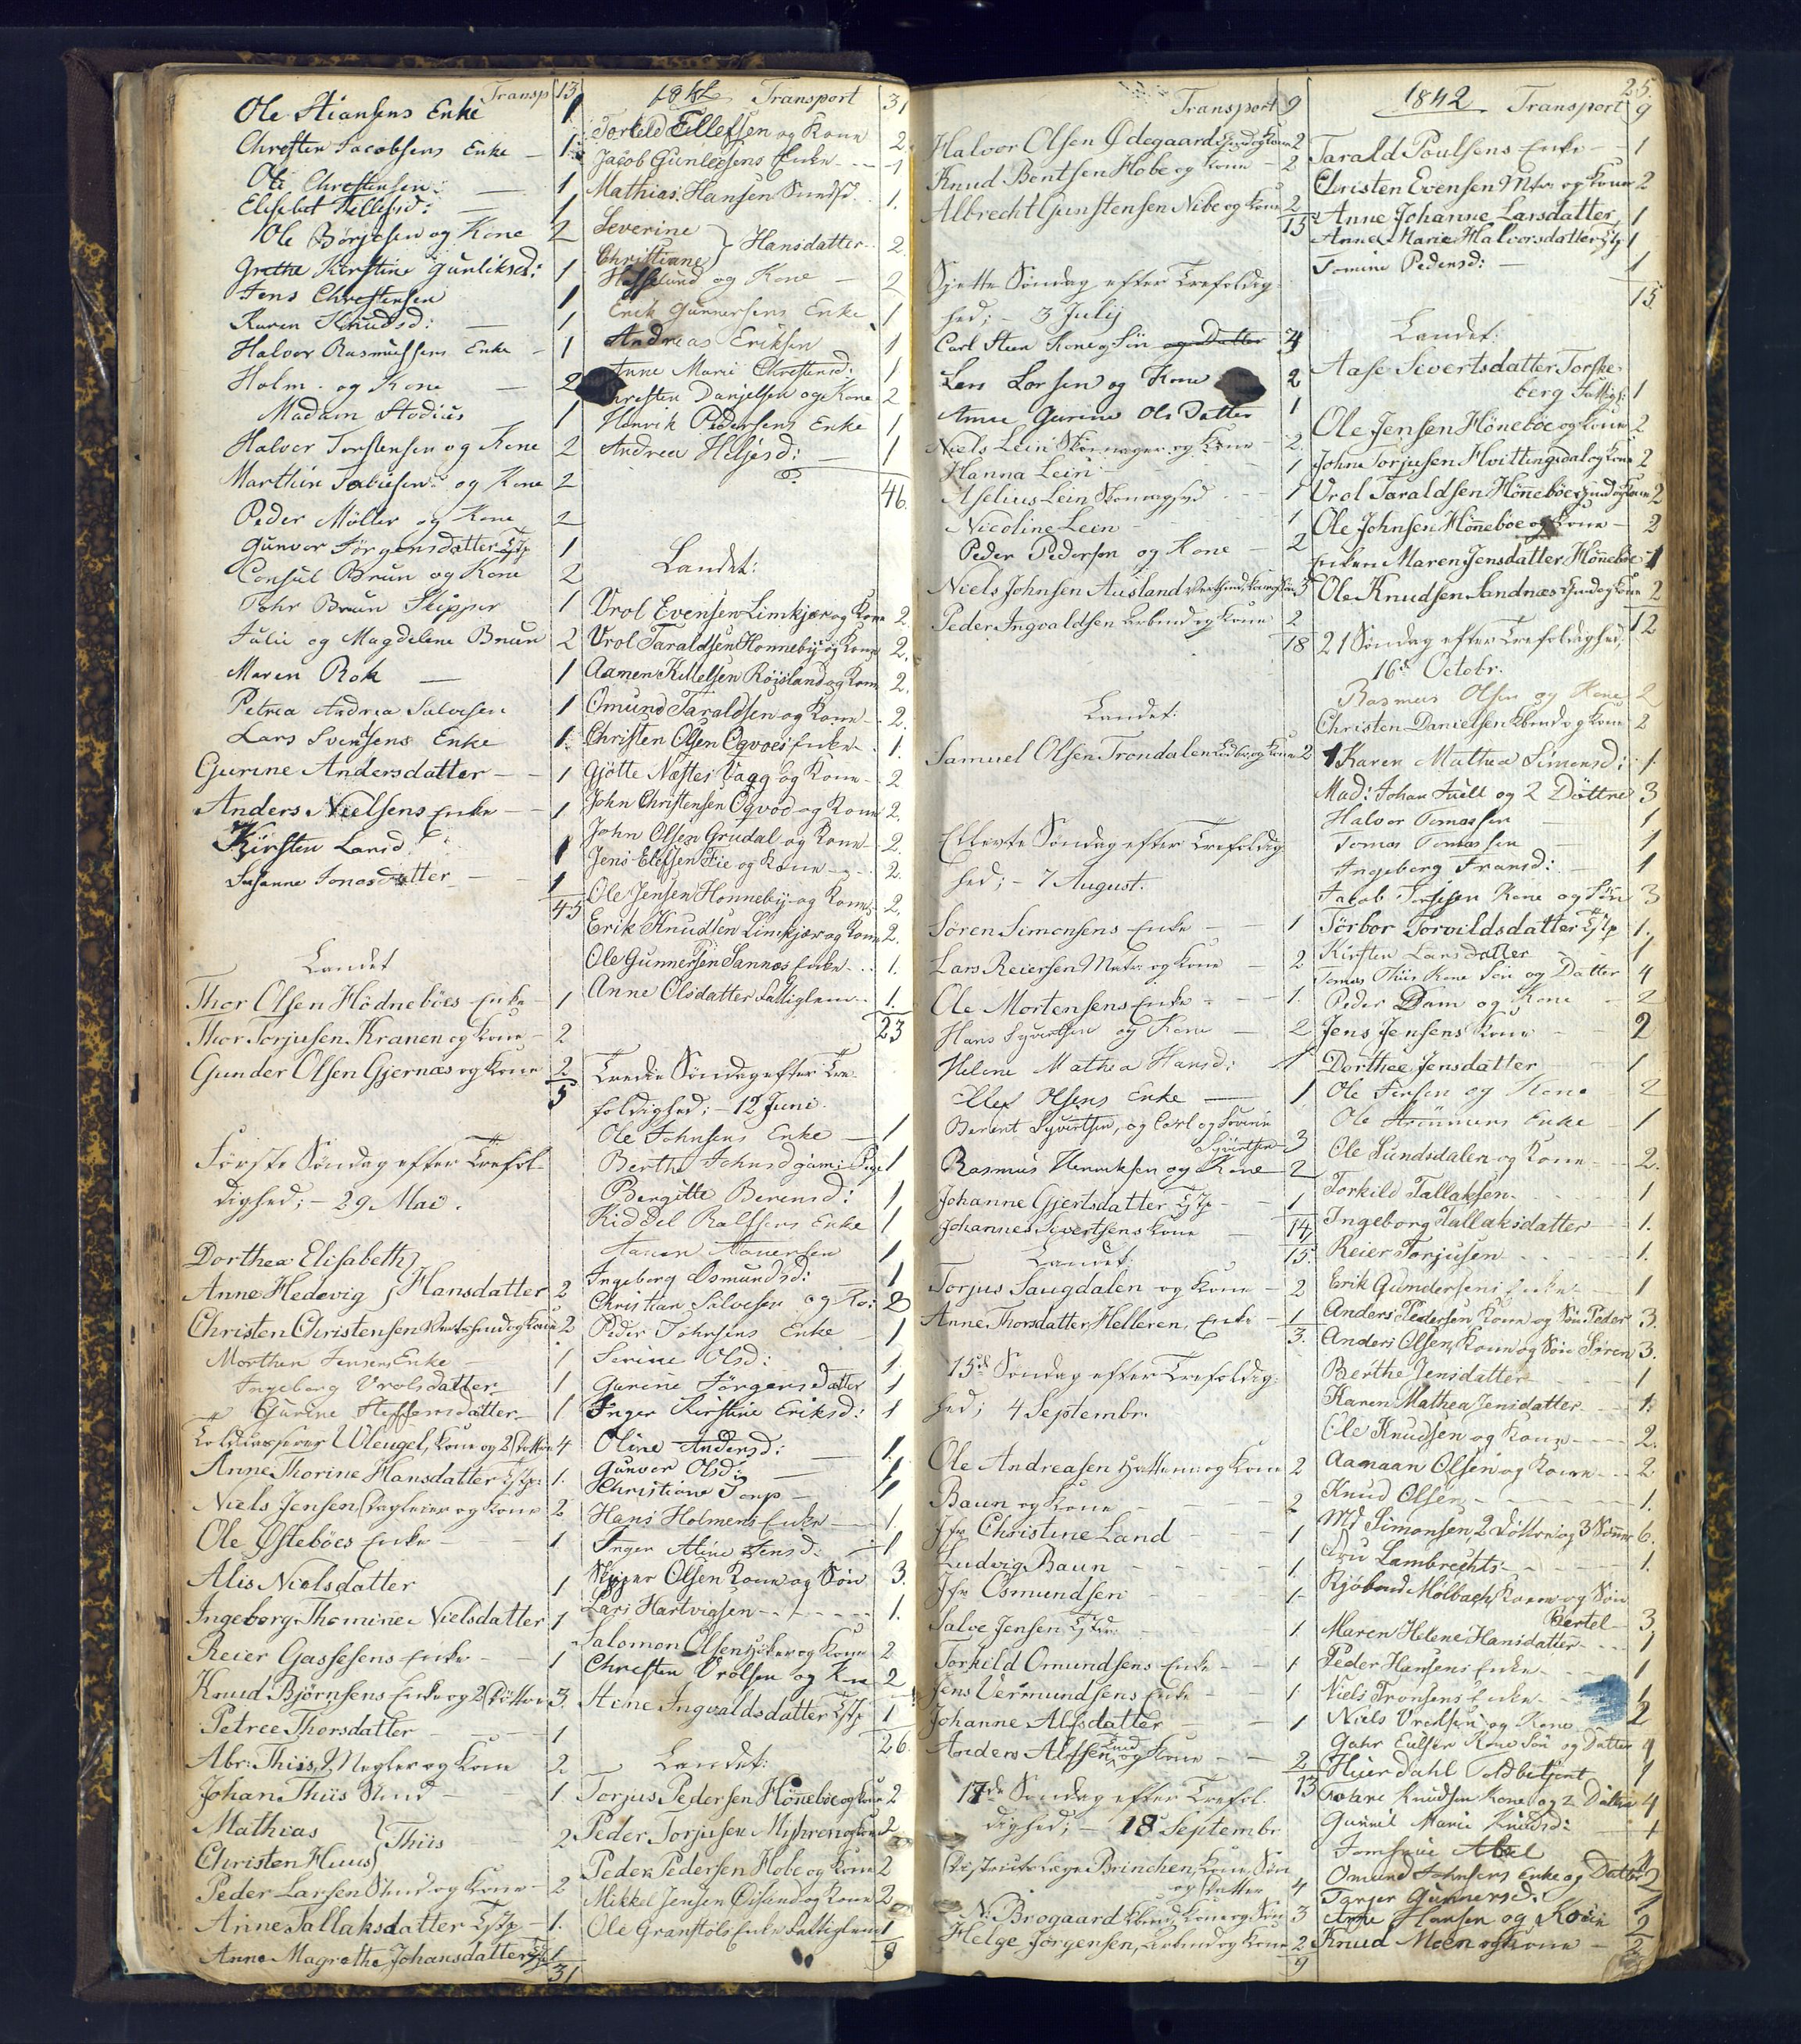 Transp 13
Ole Stiansens Enke 1
Christen Jacobsens Enke — 1
Ole Christensen — 1
Elisabet Tellefsd: — 1
Ole Börjesen og Kone 2
Grethe Kirstine Gunliksd: 1
Jens Christensen 1
Karen Knudsd: — 1
Halvor Rasmussens Enke - 1
Holm og Kone — 2
Madam Stodius 1
Halvor Torstensen og Kone 2
Marthin Tobiesen og Kone 2
Peder Möller og Kone 2
Gunvor Jörgensdatter Tjtp 1
Consul Brun og Kone 2
Fohr Brun Skipper 1
Julie og Magdelene Brun 2
Maren Rok — 1
Petrea Andrea Salvesen 1
Lars Svensens Enke 1
Gurine Andersdatter — 1
Anders Nielsens Enke — 1
Kirsten Larsd 1
Susanne Jonasdatter — 1
45
Landet
Thor Olsen Hödneböes Enke 1
Thor Torjusen Kranen og Kone 2
Gunder Olsen Gjernæs og Kone 2
5
Förste Söndag efter Trefol-
dighed; - 29 Mai.
Dorthea Elisabeth
Anne Hedevig } Hansdatter 2
Christen Christensen og Kone 2
Morthen Jensens Enke 1
Ingeborg Vrolsdatter 1
Gurine Steffensdatter 1
Toldkasserer Wleugel, Kone og 2 Döttre 4
Anne Thorine Hansdatter Tjtp: 1.
Niels Jensen Dagleier og Kone 2
Ole Östeböes Enke — 1
Alis Nielsdatter 1
Ingeborg Thomine Nielsdatter 1
Reier Gassesens Enke — 1
Knud Björnsens Enke og 2 Döttre 3.
Petree Thorsdatter — 1
Abr: Thiis, Megler og Kone 2
Johan Thiis 1
Mathias
Christen Huus } Thiis 2
Peder Larsen og Kone 2
Anne Tallaksdatter Tjtp 1.
Anne Magrethe Johansdatter 1
31
1842 Transport 31
Torkild Ellefsen og Kone 2.
Jacob Gunlecsens Enke — 1
Mathias Hansen 1.
Severine
Christiane } Hansdatter 2
Hasselund og Kone — 2
Erik Gunnersens Enke 1
Andreas Eriksen 1
Anne Marie Christensd: 1
Christen Danjelsen og Kone 2
Henrik Pedersens Enke 1
Andrea Heljesd: — 1
46.
Landet:
Vrol Evensen Limkjær og Kone 2.
Vrol Taraldsen Honneby og Kone 2.
Aamen Killelsen Röjsland og Kone 2.
Omund Taraldsen og Kone 2.
Christen Olsen Ogvoes Enke 1.
Gjötte Næstes Vagg og Kone 2
John Christensen Ogvod og Kone 2.
John Olsen Grudal og Kone 2.
Jens Elefsen Fie og Kone 2.
Ole Jensen Honneby og Kone 2.
Erik Knudsen Limkjær og Kone 2.
Ole Gunnersen Sannæs Enke 1.
Anne Olsdatter Fattiglem 1.
23
Tredie Söndag efter Tre-
foldighed; - 12 Juni.
Ole Johnsens Enke — 1
Berthe Johnsd gaml Pige 1
Bergitte Berensd: 1
Kiddel Ralfsens Enke 1
Aanen Aanensen 1
Ingeborg Osmundsd: 1
Christian Salvesen og Ko: 2
Peder Johnsens Enke 1
Serine Olsd: 1
Gurine Jörgensdatter 1
Inger Kirstine Eriksd: 1
Oline Andersd: 1
Gunvor Olsd: 1
Christiane Torp — 1
Hans Holmens Enke — 1.
Inger Aline Jensd: 1
Skipper Olsen Kone og Sön 3.
Lars Hartvigsen 1.
Salomon Olsen og Kone 2
Christen Vrolsen og Kone 2
Stine Ingvaldsdatter Tjtp 1
26.
Landet:
Torjus Pedersen Hönneböe og Kone 2
Peder Torjusen Myhren og Kone 2
Peder Pedersen Hobe og Kone 2
Mikkel Jensen Öisand og Kone 2
Ole Granstöls Enke Fattiglem 1
9
Transport 9
Halvor Olsen Ödegaard og Kone 2
Knud Bentsen Hobe og Kone - 2
Albrecht Gunstensen Nibe og Kone 2
15
Sjette Söndag efter Trefoldig-
hed; - 3 July
Carl Steen Kone og Sön og Datter 3
Lars Larsen og Kone 2
Anne Gurine Olsdatter 1
Niels Lein Skomager og Kone 2.
Hanna Lein 1
Aselius Lein 1
Nicoline Lein 1
Peder Pedersen og Kone — 2
Niels Johnsen Ausland 3
Peder Ingvaldsen Arbmd og Kone 2
18
Landet:
Samuel Olsen Trondalen og Kone 2
Ellevte Söndag efter Trefoldig-
hed; - 7 August.
Sören Simonsens Enke — 1
Lars Reiersen Matr. og Kone — 2
Ole Mortensens Enke — 1.
Hans Syvertsen og Kone — 2
Helene Mathea Hansd: 1
Ellef Olsens Enke — 1
Berent Syvertsen, og Carl og Severin
Syvertsen 3
Rasmus Henriksen og Kone 2
Johanne Gjertsdatter Tjtp 1
Johannes Sivertsens Kone 1
15.
Landet:
Torjus Saugdalen og Kone — 2
Anne Thorsdatter Helleren, Enke 1
3.
15de Söndag efter Trefoldig-
hed; 4 Septembr.
Ole Andreasen og Kone 2
Baun og Kone 2
Jfr Christine Land 1
Ludvig Baun 1
Jfr Osmundsen 1
Salve Jensen 1.
Torkild Omundsens Enke 1
Jens Vermundsens Enke 1
Johanne Alfsdatter 1
Anders Alefsen og Kone 2
13
17de Söndag efter Trefol-
dighed; - 18 Septembr
Districtslæge Brinchen, Kone, Sön
og Datter 4
N. Brogaard Kone og Sön 3
Helge Jörgensen, Arbmd og Kone 2
9
25.
1842 Transport 9
Tarald Poulsens Enke — 1
Christen Evensen Matr. og Kone 2
Anne Johanne Larsdatter 1
Anne Marie Halvorsdatter Tjtp 1
Tomine Pedersd: — 1
15
Landet:
Aase Sivertsdatter Torske-
berg Fattigl: 1
Ole Jensen Höneböe og Kone 2
John Torjusen Hvittingsdal og Kone 2
Vrol Taraldsen Hönneböe og Kone 2
Ole Johnsen Hönneböe og Kone — 2
Enken Maren Jensdatter Hönneböe 1
Ole Knudsen Sandnæs og Kone 2
12
21 Söndag efter Trefoldighed,
16d Octobr.
Rasmus Olsen og Kone 2
Christen Danielsen og Kone 2
Karen Mathea Simonsd: 1
Mad: Johan Juell og 2 Döttre 3
Halvor Tomassen — 1
Tomas Tomassen — 1
Ingeborg Fransd: — 1
Jacob Kone og Sön 3
Törbor Torvildsdatter Tjtp 1.
Kirsten Larsdatter 1
Tomas Thiis Kone Sön og Datter 4
Peder Dam og Kone — 2
Jens Jensens Kone — 2
Dorthee Jensdatter — 1
Ole Jensen og Kone 2
Ole Enke — 1
Ole Sundsdalen og Kone — 2.
Torkild Tallaksen 1
Ingeborg Tallaksdatter 1.
Reier Torjusen 1.
Erik Gundersens Enke 1
Anders Pedersen, Kone og Sön Peder 3.
Anders Olsen, Kone og Sön Sören 3.
Berthe Jensdatter 1
Karen Mathea Jensdatter 1.
Ole Knudsen og Kone 2.
Aanaan Olsen og Kone 2
Knud Olsen 1.
Md Simonsen, 2 Döttre og 3 Sönner 6.
Fru Lambrechts 1.
Kjöbmd Molbach, Kone og Sön
Bertel 3
Maren Helene Hansdatter 1
Peder Hansens Enke 1
Niels Tronsens Enke 1
Niels Vrolsen og Kone 2
Kone Sön og Datter 4
Huerdahl Toldbetjent 1
Knudsen Kone og 2 Döttre 4
Gunnil Marie Knudsd: 1
Jomfrue Abel 1
Omund Johnsens Enke og Datter 2
Torger Gunnersd. 1
Hansen og Kone 2
Knud Moen og Kone — 2